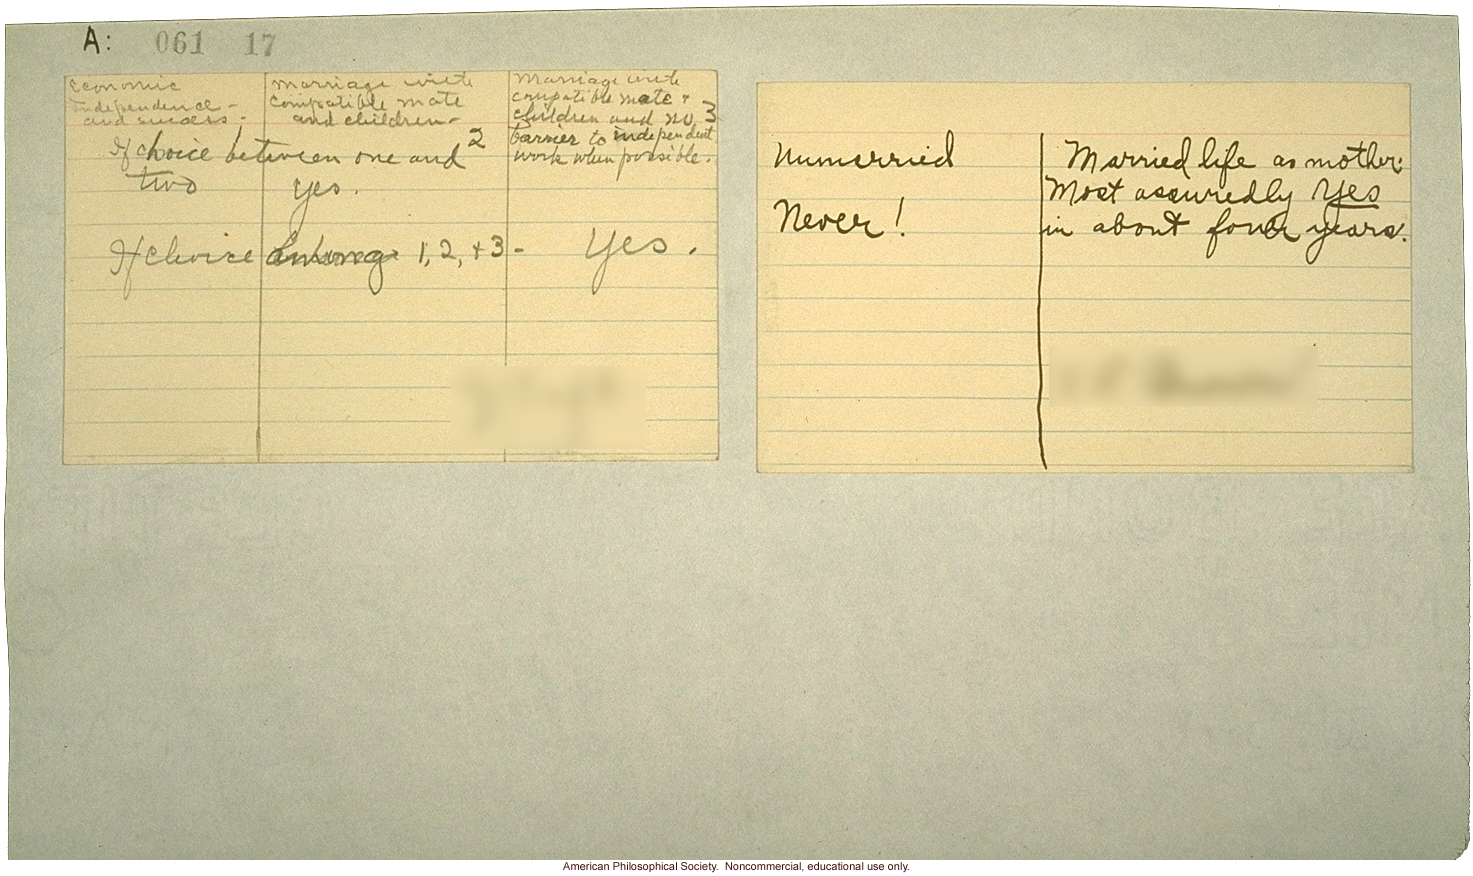 A: 061 17
economic
independence -
and success - 1
marriage with
compatible mate
and children - 2
Marriage with
compatible mate +
children and no 3
barrier to independent
work when possible.
If choice between one and
two yes.
If choice among 1, 2, + 3 - Yes.
Unmarried
Never!
Married life as mother:
Most assuredly Yes
in about four years.
American Philosophical Society. Noncommercial, educational use only.